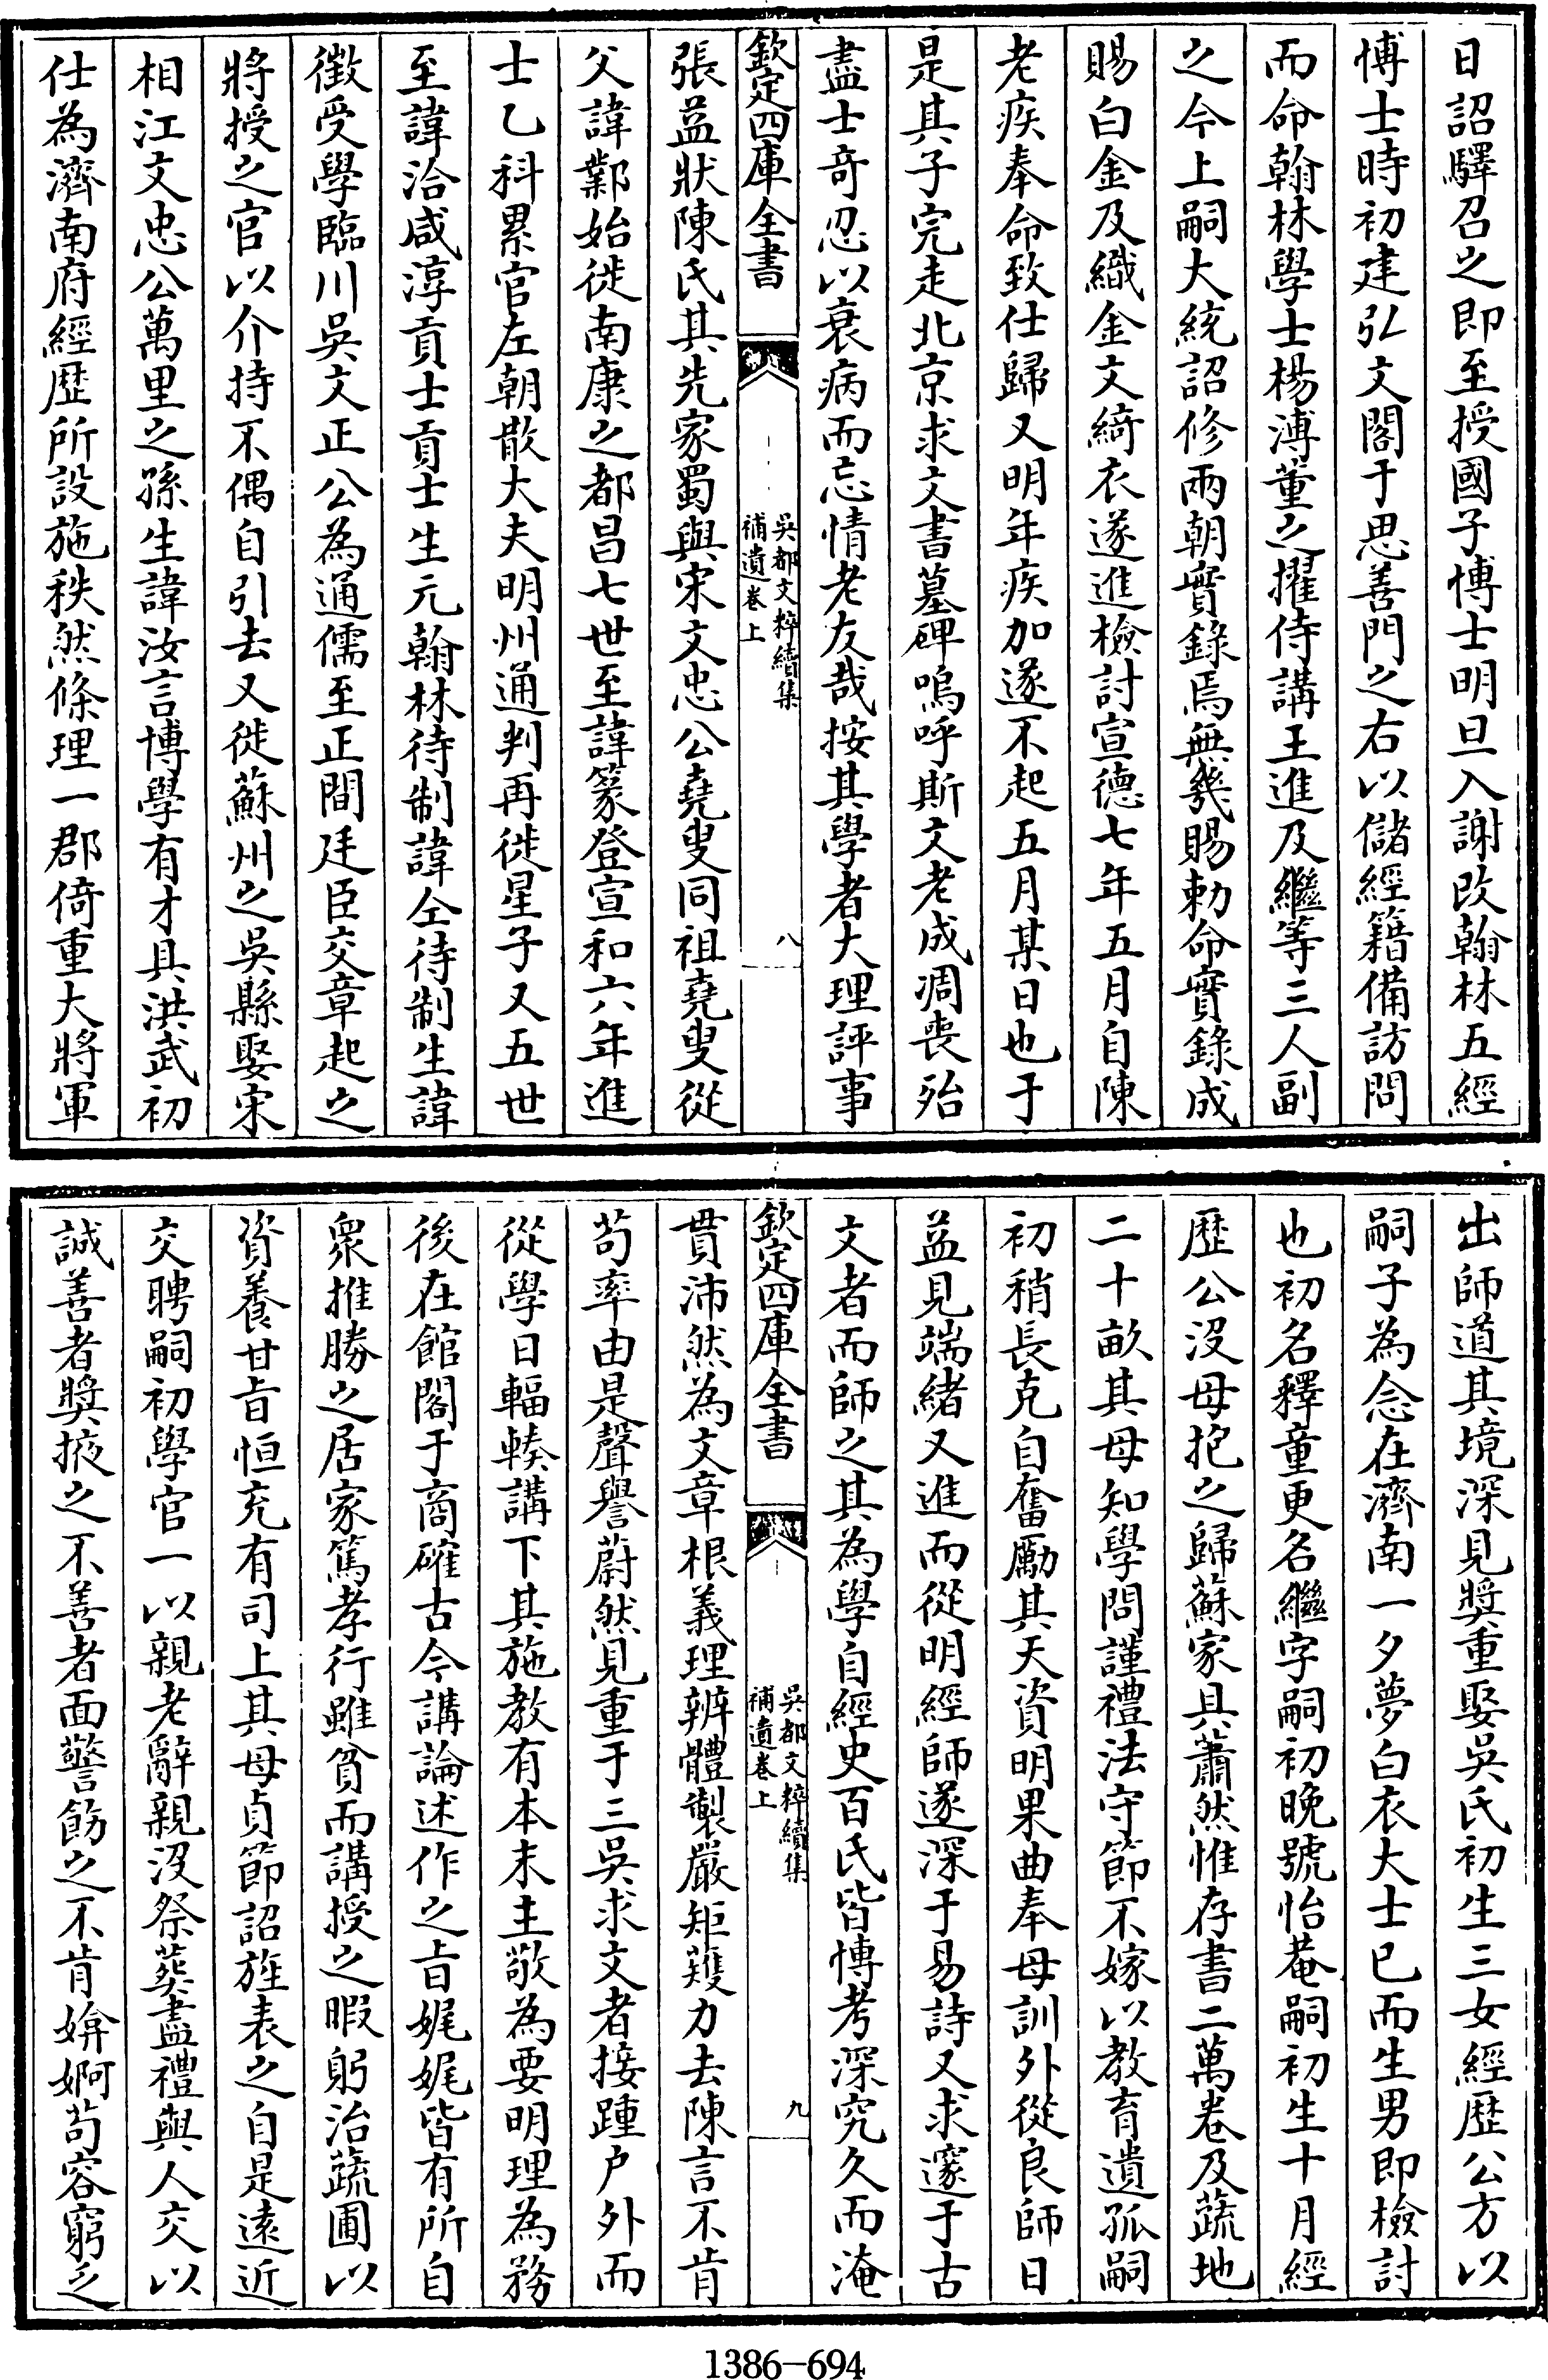 日詔驛召之即至授國子博士明旦入謝改翰林五經
博士時初建弘文閣于思善門之右以儲經籍備訪問
而命翰林學士楊溥董之擢侍講王進及繼等三人副
之今上嗣大統詔修兩朝實錄焉無幾賜勅命實錄成
賜白金及織金文綺衣遂進檢討宣德七年五月自陳
老疾奉命致仕歸又明年疾加遂不起五月某日也于
是其子完走北京求文書墓碑嗚呼斯文老成凋喪殆
盡士奇忍以衰病而忘情老友哉按其學者大理評事
欽定四庫全書
吳都文粹續集
補遺卷上
八
張益狀陳氏其先家蜀與宋文忠公堯叟同祖堯叟從
父諱鄴始徙南康之都昌七世至諱篆登宣和六年進
士乙科累官左朝散大夫明州通判再徙星子又五世
至諱洽咸淳貢士貢士生元翰林待制諱仝待制生諱
徵受學臨川吳文正公為通儒至正間廷臣交章起之
將授之官以介持不偶自引去又徙蘇州之吳縣娶宋
相江文忠公萬里之孫生諱汝言博學有才具洪武初
仕為濟南府經歷所設施秩然條理一郡倚重大將軍
出師道其境深見奬重娶吳氏初生三女經歷公方以
嗣子為念在濟南一夕夢白衣大士已而生男即檢討
也初名釋童更名繼字嗣初晚號怡菴嗣初生十月經
歷公沒母抱之歸蘇家具蕭然惟存書二萬卷及蔬地
二十畝其母知學問謹禮法守節不嫁以教育遺孤嗣
初稍長克自奮勵其天資明果曲奉母訓外從良師日
益見端緒又進而從明經師遂深于易詩又求邃于古
文者而師之其為學自經史百氏皆博考深究久而淹
欽定四庫全書
吳都文粹續集
補遺卷上
九
貫沛然為文章根義理辨體製嚴矩矱力去陳言不肯
苟率由是聲譽蔚然見重于三吳求文者接踵户外而
從學日輻輳講下其施教有本末主敬為要明理為務
後在館閣于商確古今講論述作之㫖娓娓皆有所自
衆推勝之居家篤孝行雖貧而講授之暇躬治蔬圃以
資養甘㫖恒充有司上其母貞節詔旌表之自是遠近
交聘嗣初學官一以親老辭親沒祭葬盡禮與人交以
誠善者奬掖之不善者面警飭之不肯媕婀苟容窮乏
1386-694